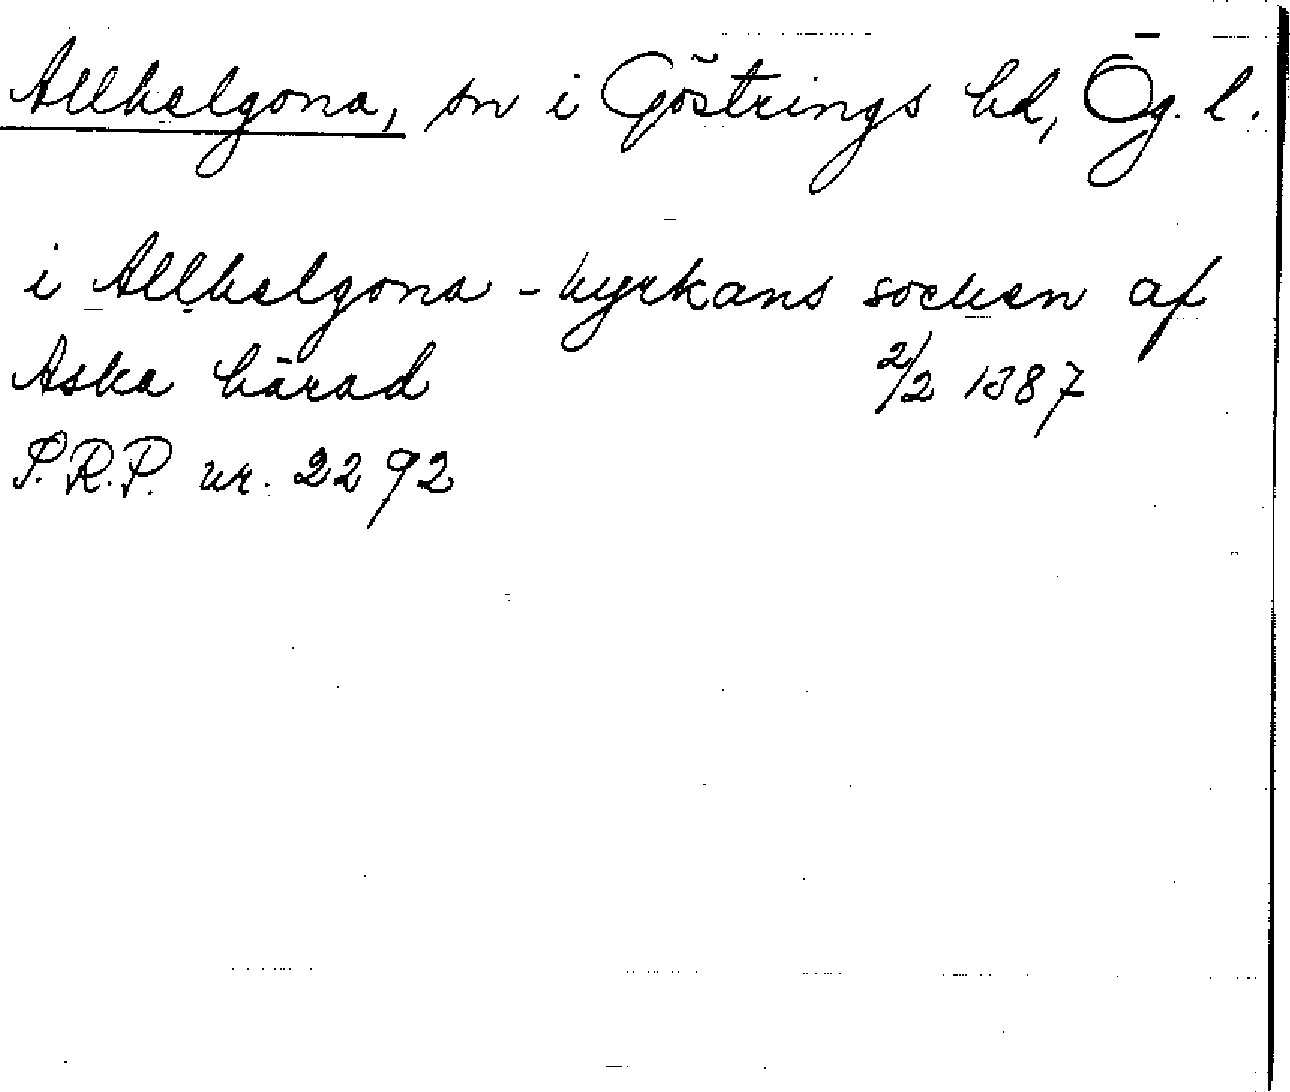 Allhelgona, sn i Göstrings hd, Ög. l.
i Allhelgona-kyrkans socken af
Aska härad 2/2 1387
S.R.P. nr. 2292